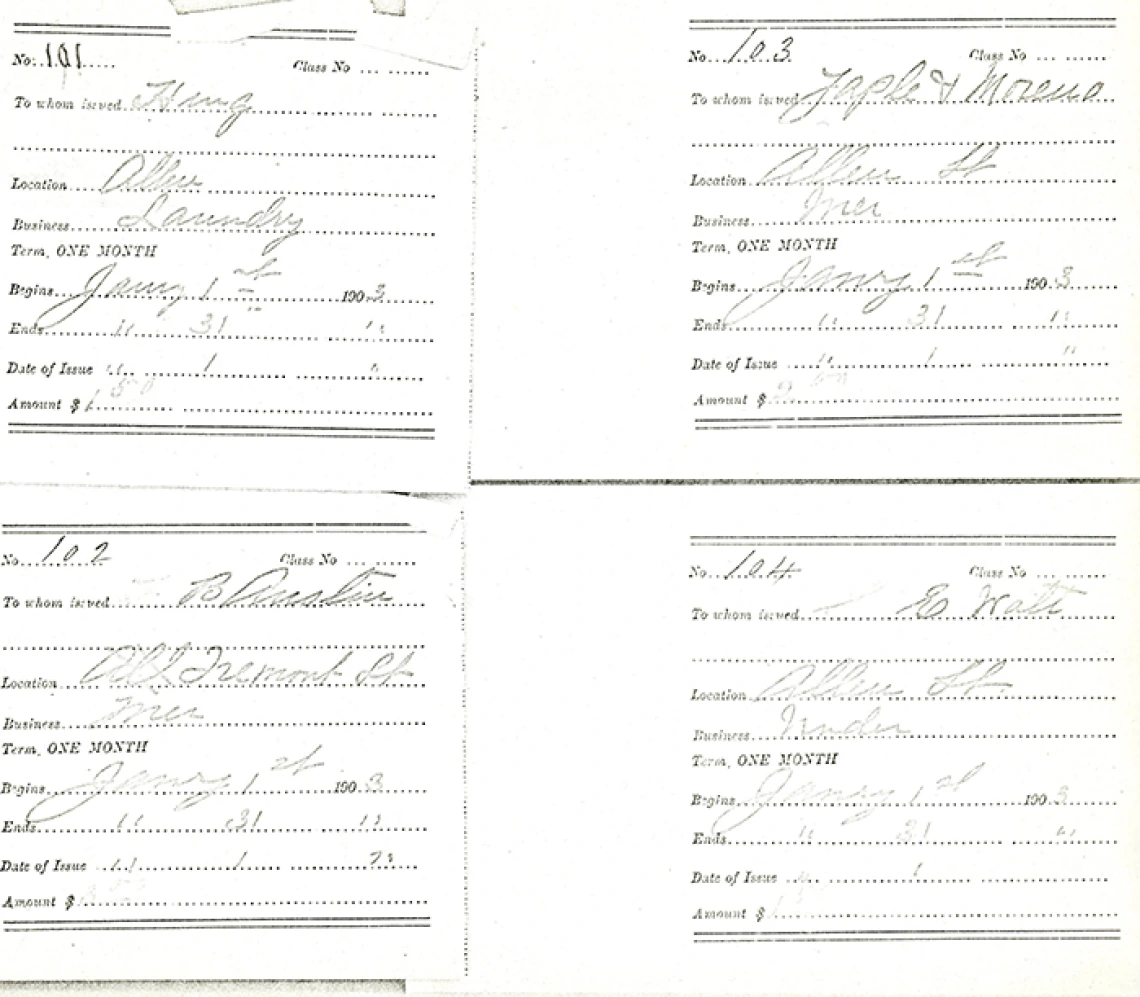 No. 101 Class No
To whom issued Hing
Location Allen
Business Laundry
Term, ONE MONTH
Begins Janry 1st 1903
Ends " 31 "
Date of Issue " 1 "
Amount $ 1 50
No. 102 Class No
To whom issued B Austin
Location All Tremont St
Business Mer
Term, ONE MONTH
Begins Janry 1st 1903
Ends " 31 "
Date of Issue " 1 "
Amount $
No. 103 Class No
To whom issued & Moreno
Location Allen St
Business Mer
Term, ONE MONTH
Begins Janry 1st 1903
Ends " 31 "
Date of Issue " 1 "
Amount $ 2
No. 104 Class No
To whom issued E Watt
Location Allen St.
Business Under
Term, ONE MONTH
Begins Janry 1st 1903
Ends " 31 "
Date of Issue " 1
Amount $